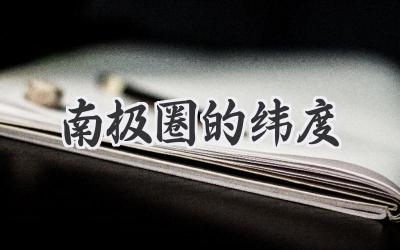 南极圈的纬度